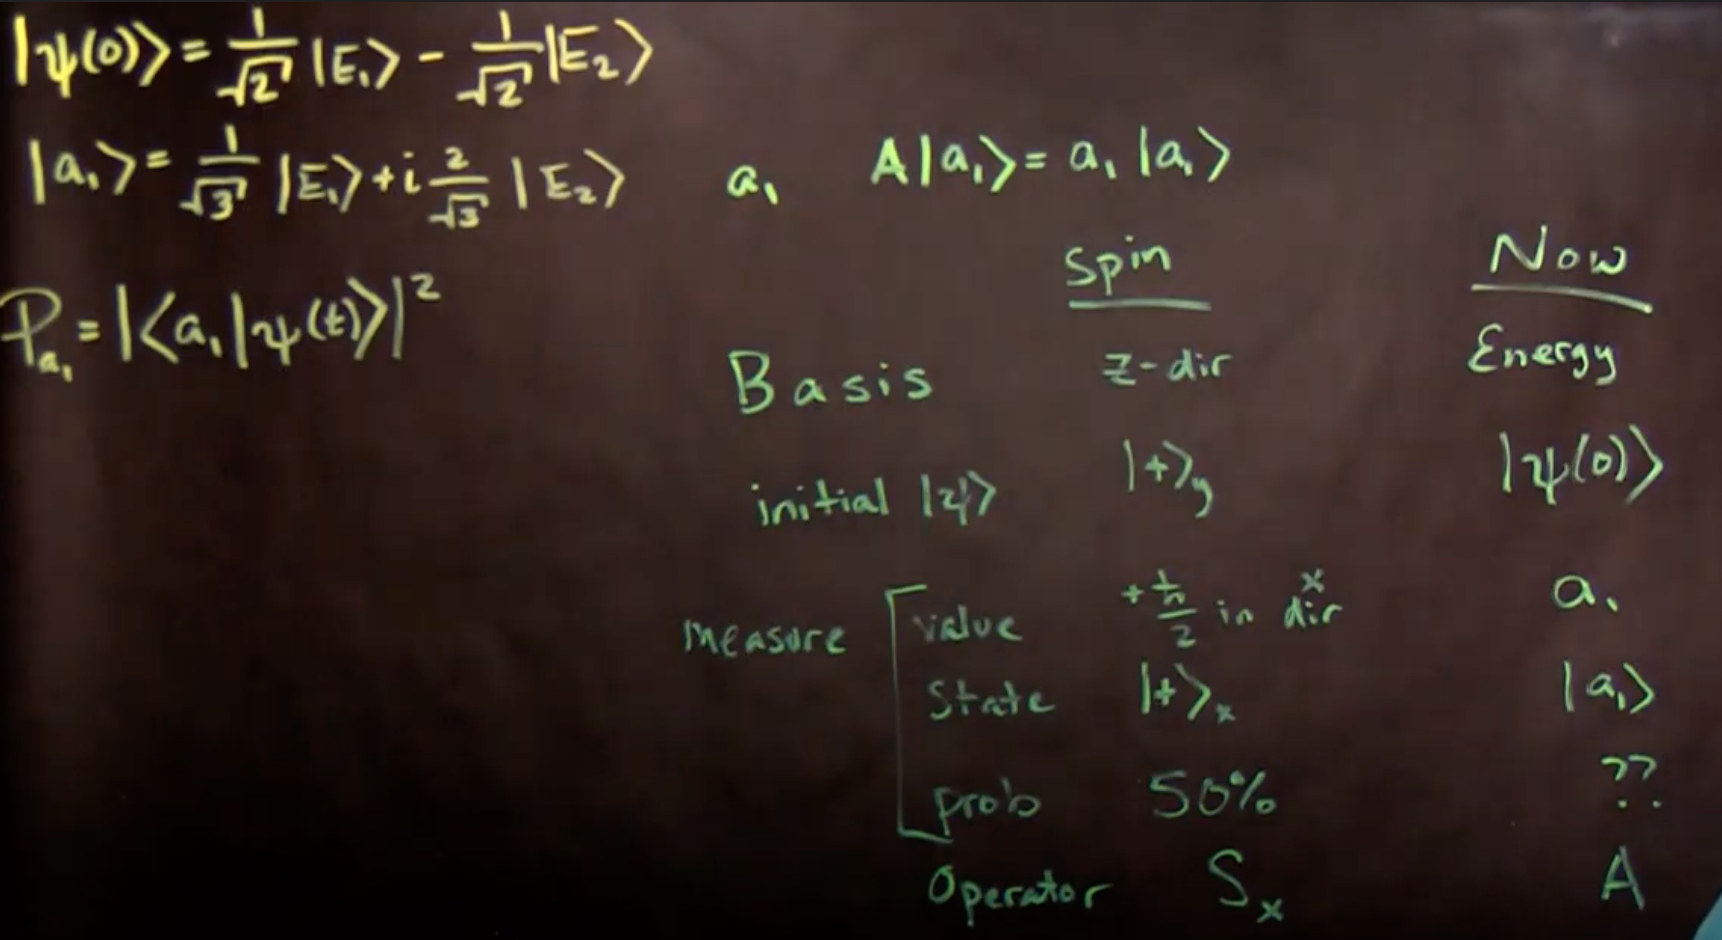 |ψ(0)⟩ = 1/√2 |E₁⟩ - 1/√2 |E₂⟩
|a₁⟩ = 1/√3 |E₁⟩ + i 2/√3 |E₂⟩
a₁ A|a₁⟩ = a₁ |a₁⟩
P_a₁ = |⟨a₁|ψ(t)⟩|²
Spin Now
Basis z-dir Energy
initial |ψ⟩ |+⟩_y |ψ(0)⟩
measure value +ħ/2 in x dir a₁
State |+⟩ₓ |a₁⟩
prob 50% ??
Operator Sₓ A